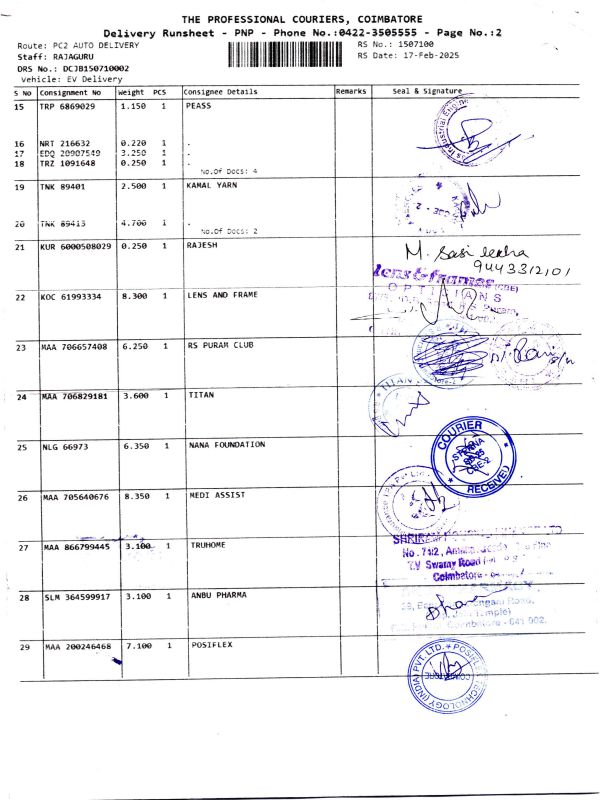 THE PROFESSIONAL COURIERS, COIMBATORE
Delivery Runsheet - PNP - Phone No.:0422-3505555 - Page No.:2
Route: PC2 AUTO DELIVERY RS No.: 1507100
Staff: RAJAGURU RS Date: 17-Feb-2025
DRS No.: DCJB150710002
Vehicle: EV Delivery
S No Consignment No Weight PCS Consignee Details Remarks Seal & Signature
15 TRP 6869029 1.150 1 PEASS
16 NRT 216632 0.220 1 .
17 EDQ 20907549 3.250 1 .
18 TRZ 1091648 0.250 1 .
No.Of Docs: 4
19 TNK 89401 2.500 1 KAMAL YARN
20 TNK 89413 4.700 1 .
No.Of Docs: 2
21 KUR 6000508029 0.250 1 RAJESH
M. Sasi lekha
9443312101
Lens & frames (CBE)
OPTITIANS
22 KOC 61993334 8.300 1 LENS AND FRAME
23 MAA 706657408 6.250 1 RS PURAM CLUB
24 MAA 706829181 3.600 1 TITAN
TITAN
25 NLG 66973 6.350 1 NANA FOUNDATION
COURIER
CBE-2
RECEIVED
26 MAA 705640676 8.350 1 MEDI ASSIST
27 MAA 866799445 3.100 1 TRUHOME
SHRIRAM
No. 74/2,
T.V Swamy Road
Coimbatore
28 SLM 364599917 3.100 1 ANBU PHARMA
Road,
Temple)
Coimbatore - 641 002.
29 MAA 200246468 7.100 1 POSIFLEX
POSIFLEX TECHNOLOGY (INDIA) PVT. LTD.
COIMBATORE